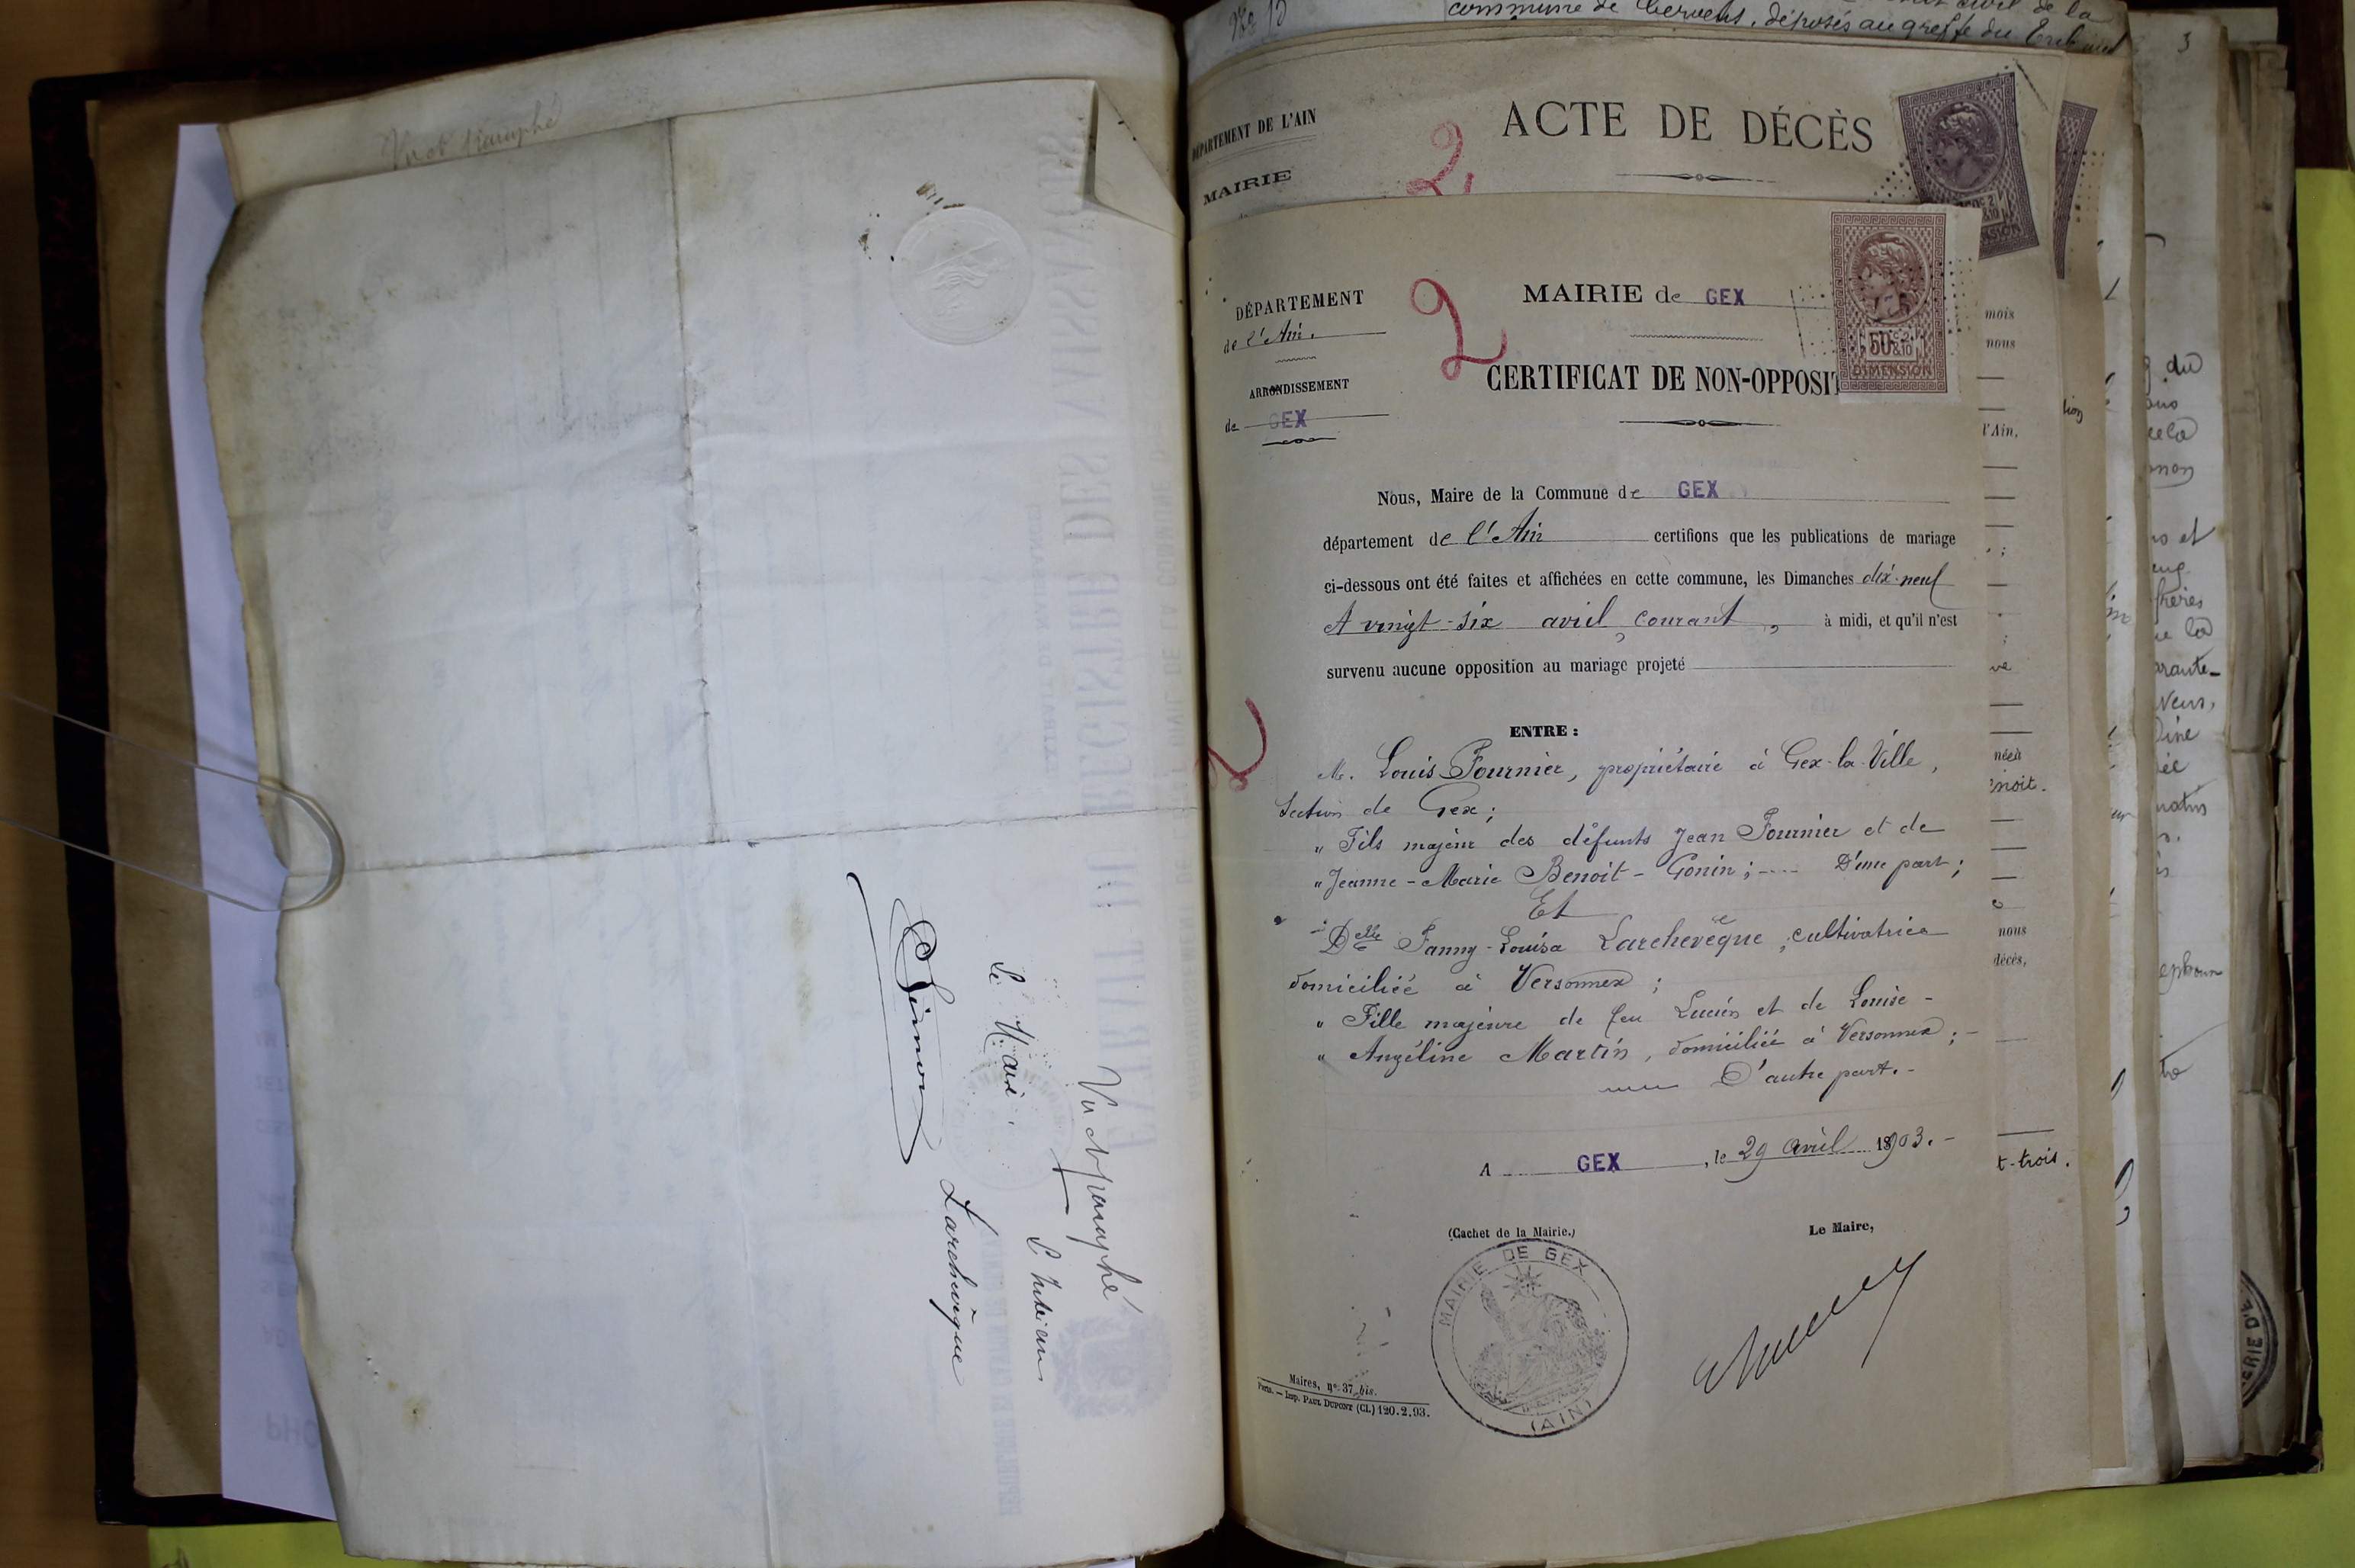 Vu et paraphé
Vu et paraphé
L'Intérieur
Le Maire
Larchevêque
commune de Cervens, déposés au greffe du
3
DÉPARTEMENT DE L'AIN
MAIRIE
2
ACTE DE DÉCÈS
DÉPARTEMENT
de l'Ain.
ARRONDISSEMENT
de GEX
2
MAIRIE de GEX
50c 2
&10
DIMENSION
CERTIFICAT DE NON-OPPOSIT
Nous, Maire de la Commune de GEX
département de l'Ain certifions que les publications de mariage
ci-dessous ont été faites et affichées en cette commune, les Dimanches dix-neuf
et vingt-six avril courant, à midi, et qu'il n'est
survenu aucune opposition au mariage projeté
ENTRE :
M. Louis Fournier, propriétaire à Gex-la-Ville,
Section de Gex;
" Fils majeur des défunts Jean Fournier et de
" Jeanne-Marie Benoit-Gonin; D'une part;
Et
Delle Fanny-Louisa Larchevêque, cultivatrice
domiciliée à Versonnex;
" Fille majeure de feu Lucien et de Louise-
" Angéline Martin, domiciliée à Versonnex;-
D'autre part.-
A GEX, le 29 avril 1903.-
(Cachet de la Mairie.)
Le Maire,
MAIRIE DE GEX
(AIN)
Maires, n° 37 bis.
Paris. — Imp. PAUL DUPONT (Cl.) 120.2.93.
mois
nous
l'Ain.
née à
nous
décès,
t-trois.